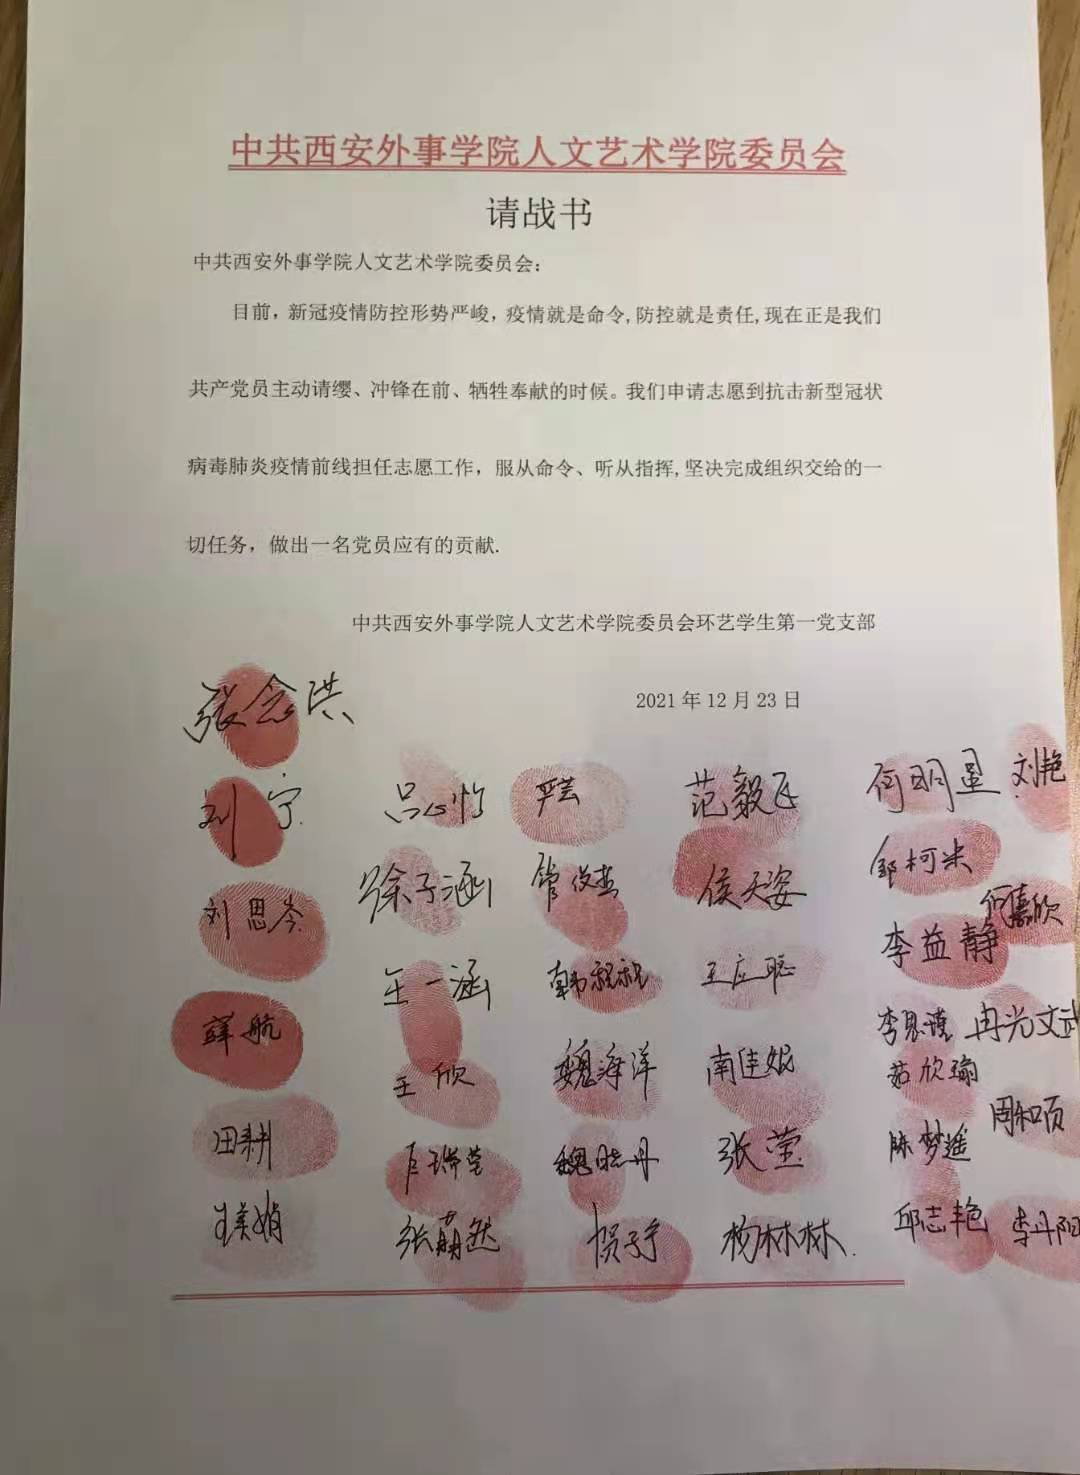 中共西安外事学院人文艺术学院委员会
请战书
中共西安外事学院人文艺术学院委员会：
目前，新冠疫情防控形势严峻，疫情就是命令,防控就是责任,现在正是我们
共产党员主动请缨、冲锋在前、牺牲奉献的时候。我们申请志愿到抗击新型冠状
病毒肺炎疫情前线担任志愿工作，服从命令、听从指挥,坚决完成组织交给的一
切任务，做出一名党员应有的贡献.
中共西安外事学院人文艺术学院委员会环艺学生第一党支部
2021年12月23日
张念洪
刘宁 吕心怡 严芸 范毅飞 何明星 刘艳
刘思岑 徐子涵 侯天姿 邹柯米
何嘉欣
薛航 王一涵 王应聪 李益静
王欣 魏海洋 南佳妮 李思瑾 冉光文武
茹欣瑜
田耕 魏晓丹 张莹 陈梦遥 周和页
王美娟 张萌然 贺子宁 杨林林 邱志艳 李丹阳